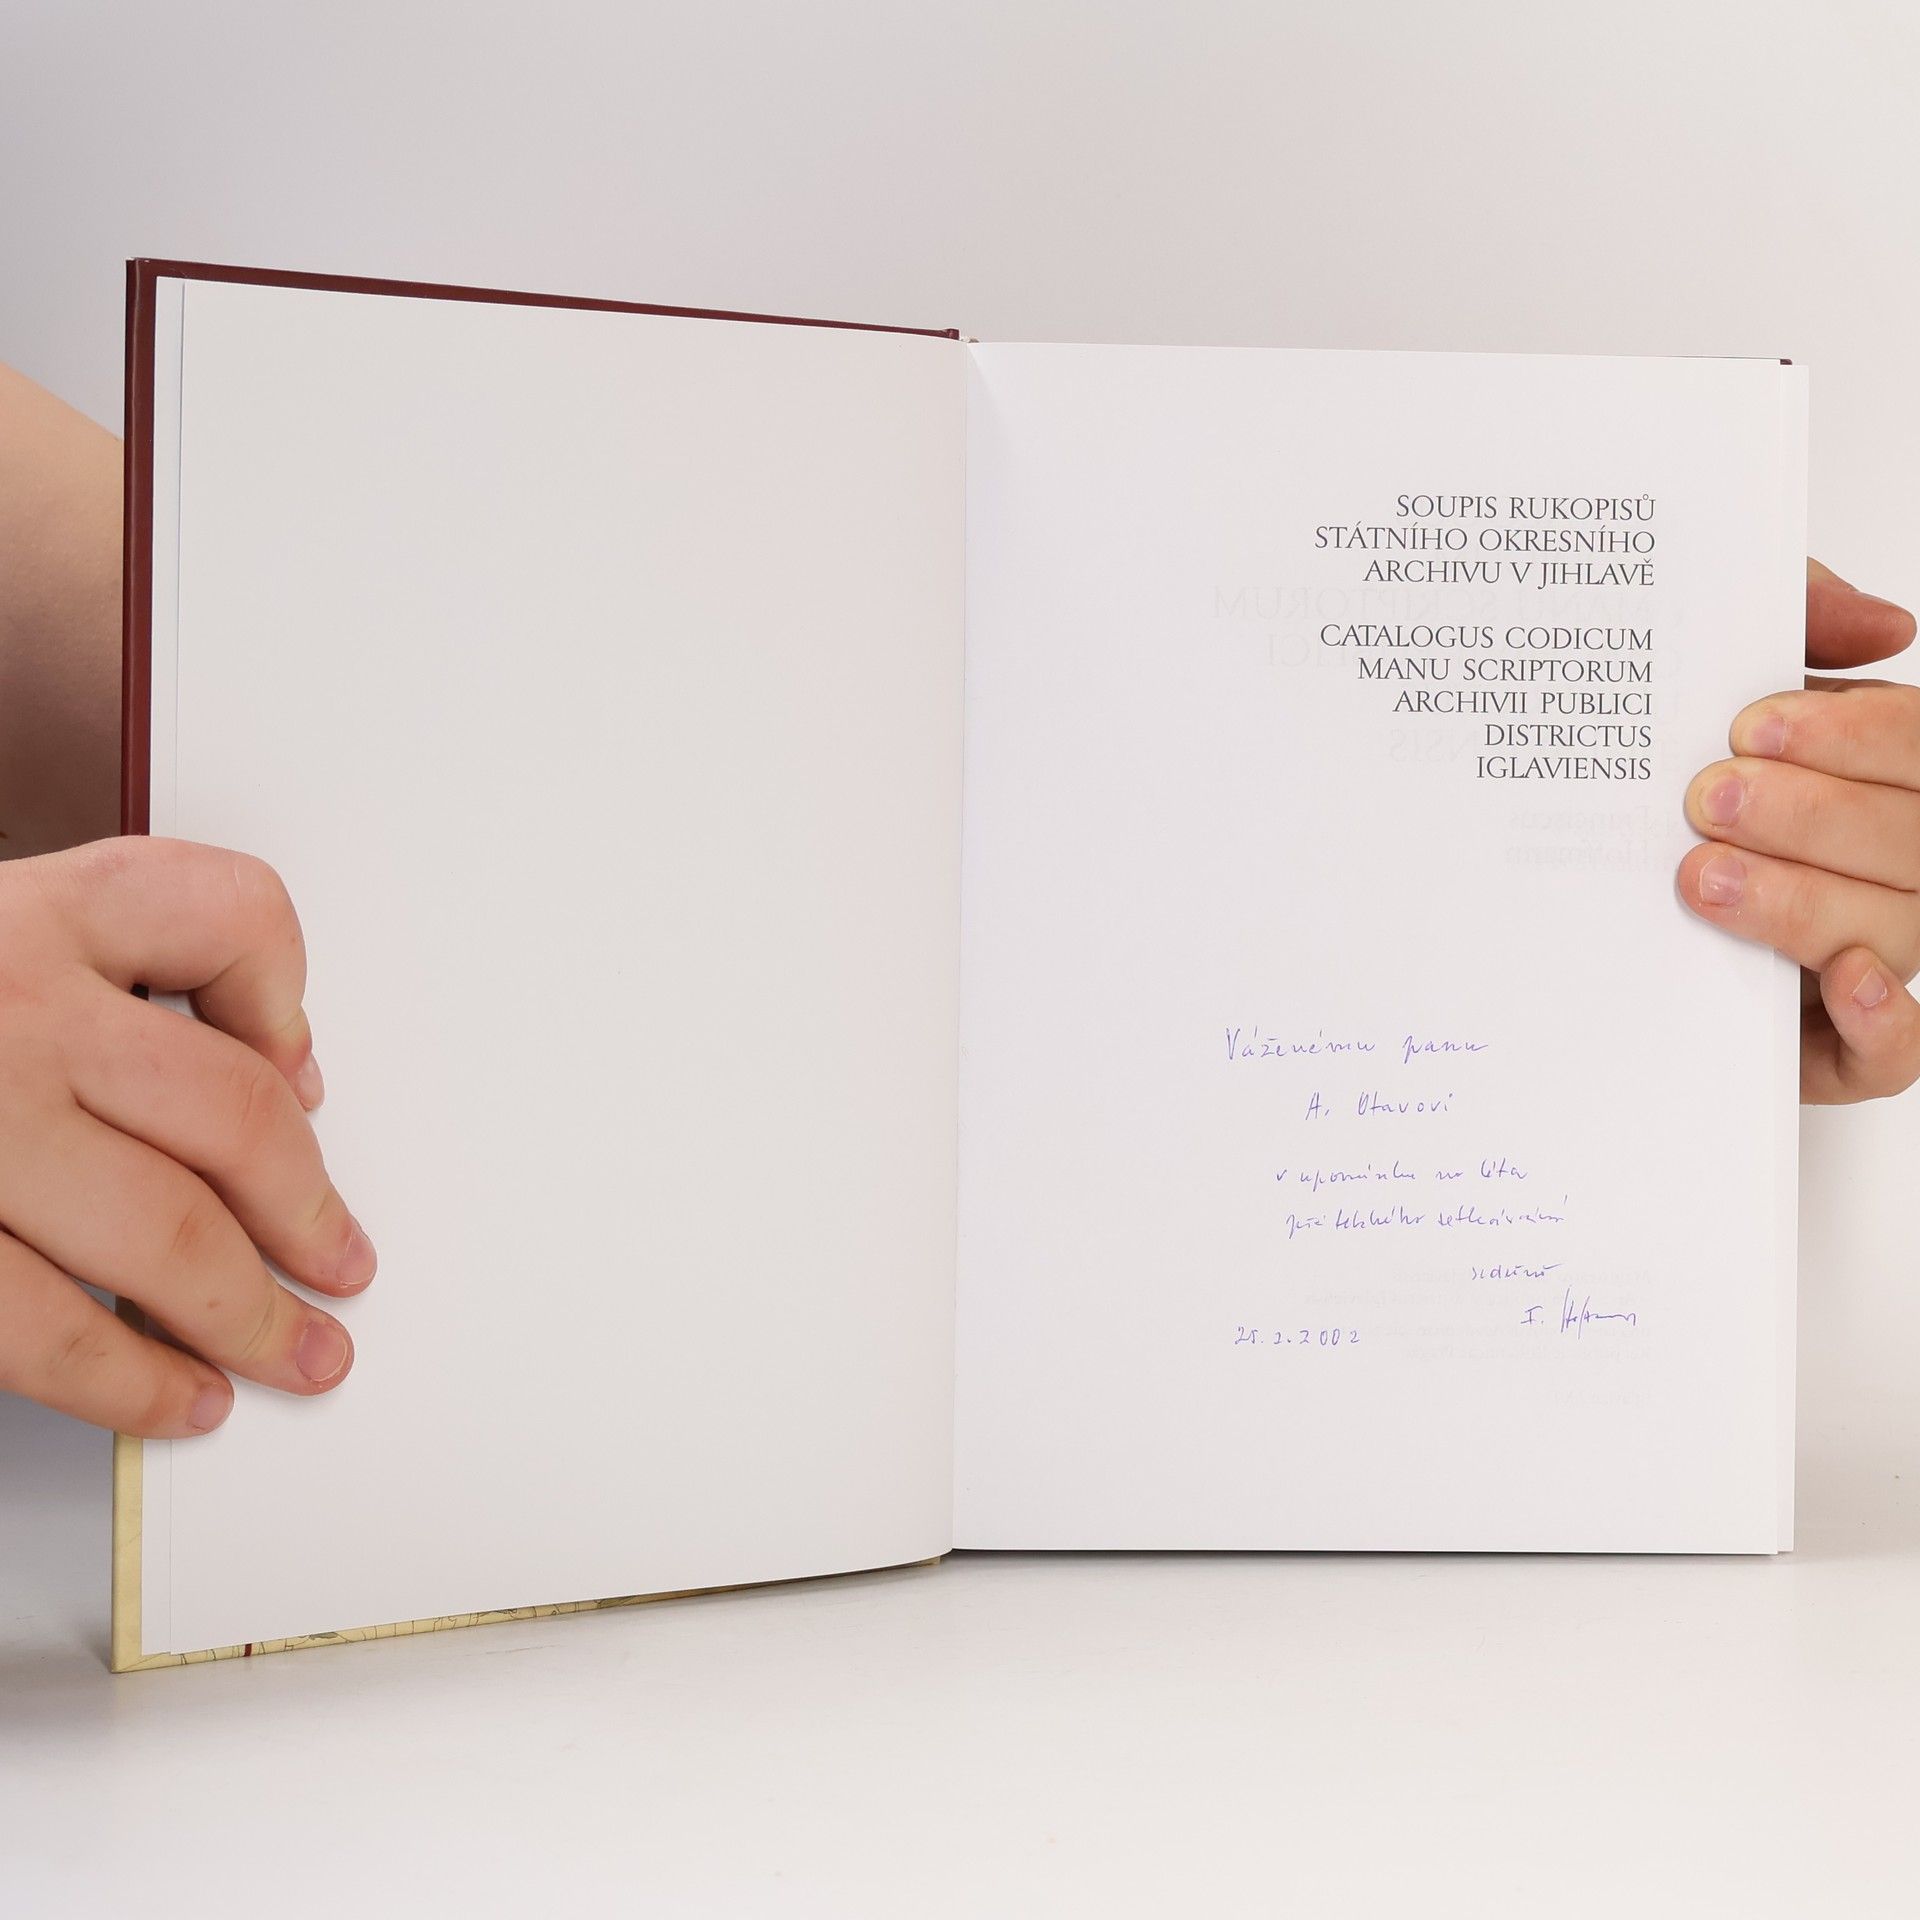 SOUPIS RUKOPISŮ
STÁTNÍHO OKRESNÍHO
ARCHIVU V JIHLAVĚ
CATALOGUS CODICUM
MANU SCRIPTORUM
ARCHIVII PUBLICI
DISTRICTUS
IGLAVIENSIS
Váženému panu
A. Otavovi
v upomínku na léta
přátelského setkávání
srdečně
F. Hoffmann
25. 2. 2002